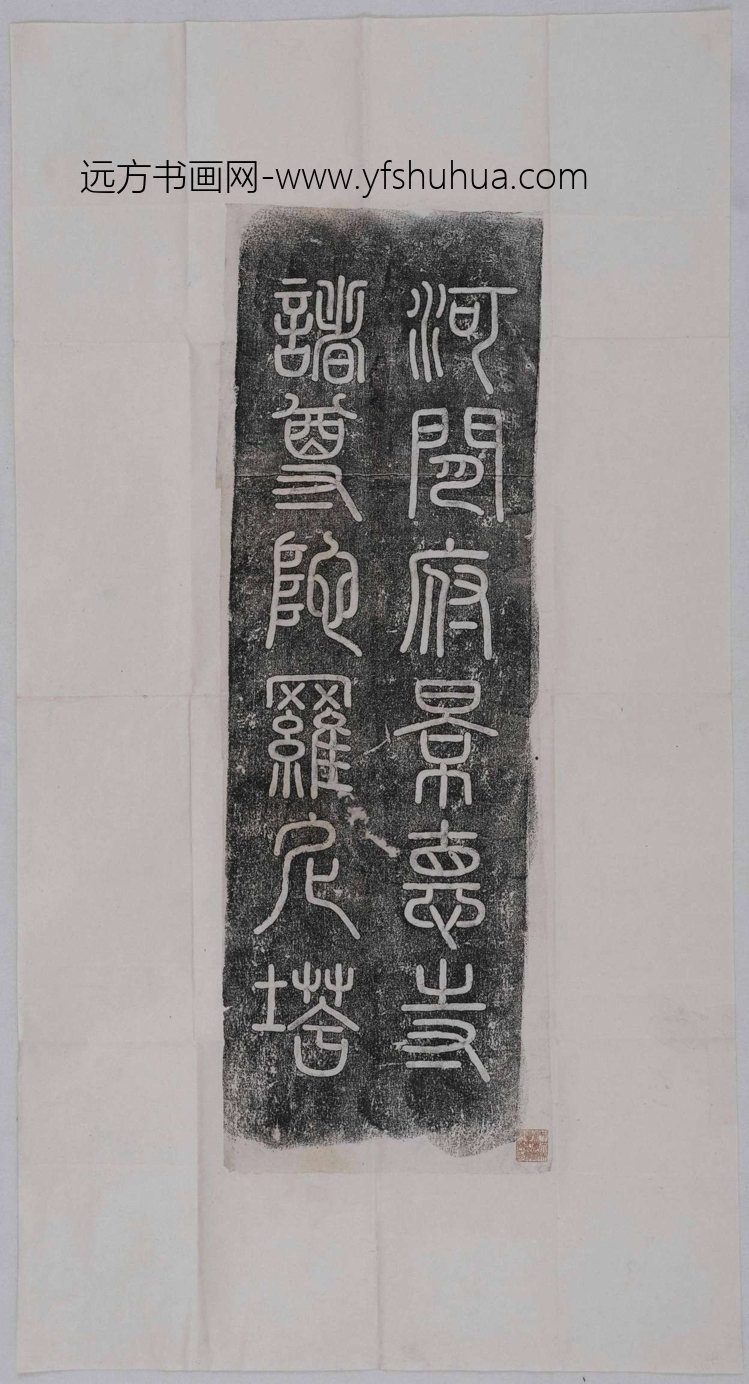 远方书画网-www.yfshuhua.com
河閒府景德寺
諸尊陀羅尼塔